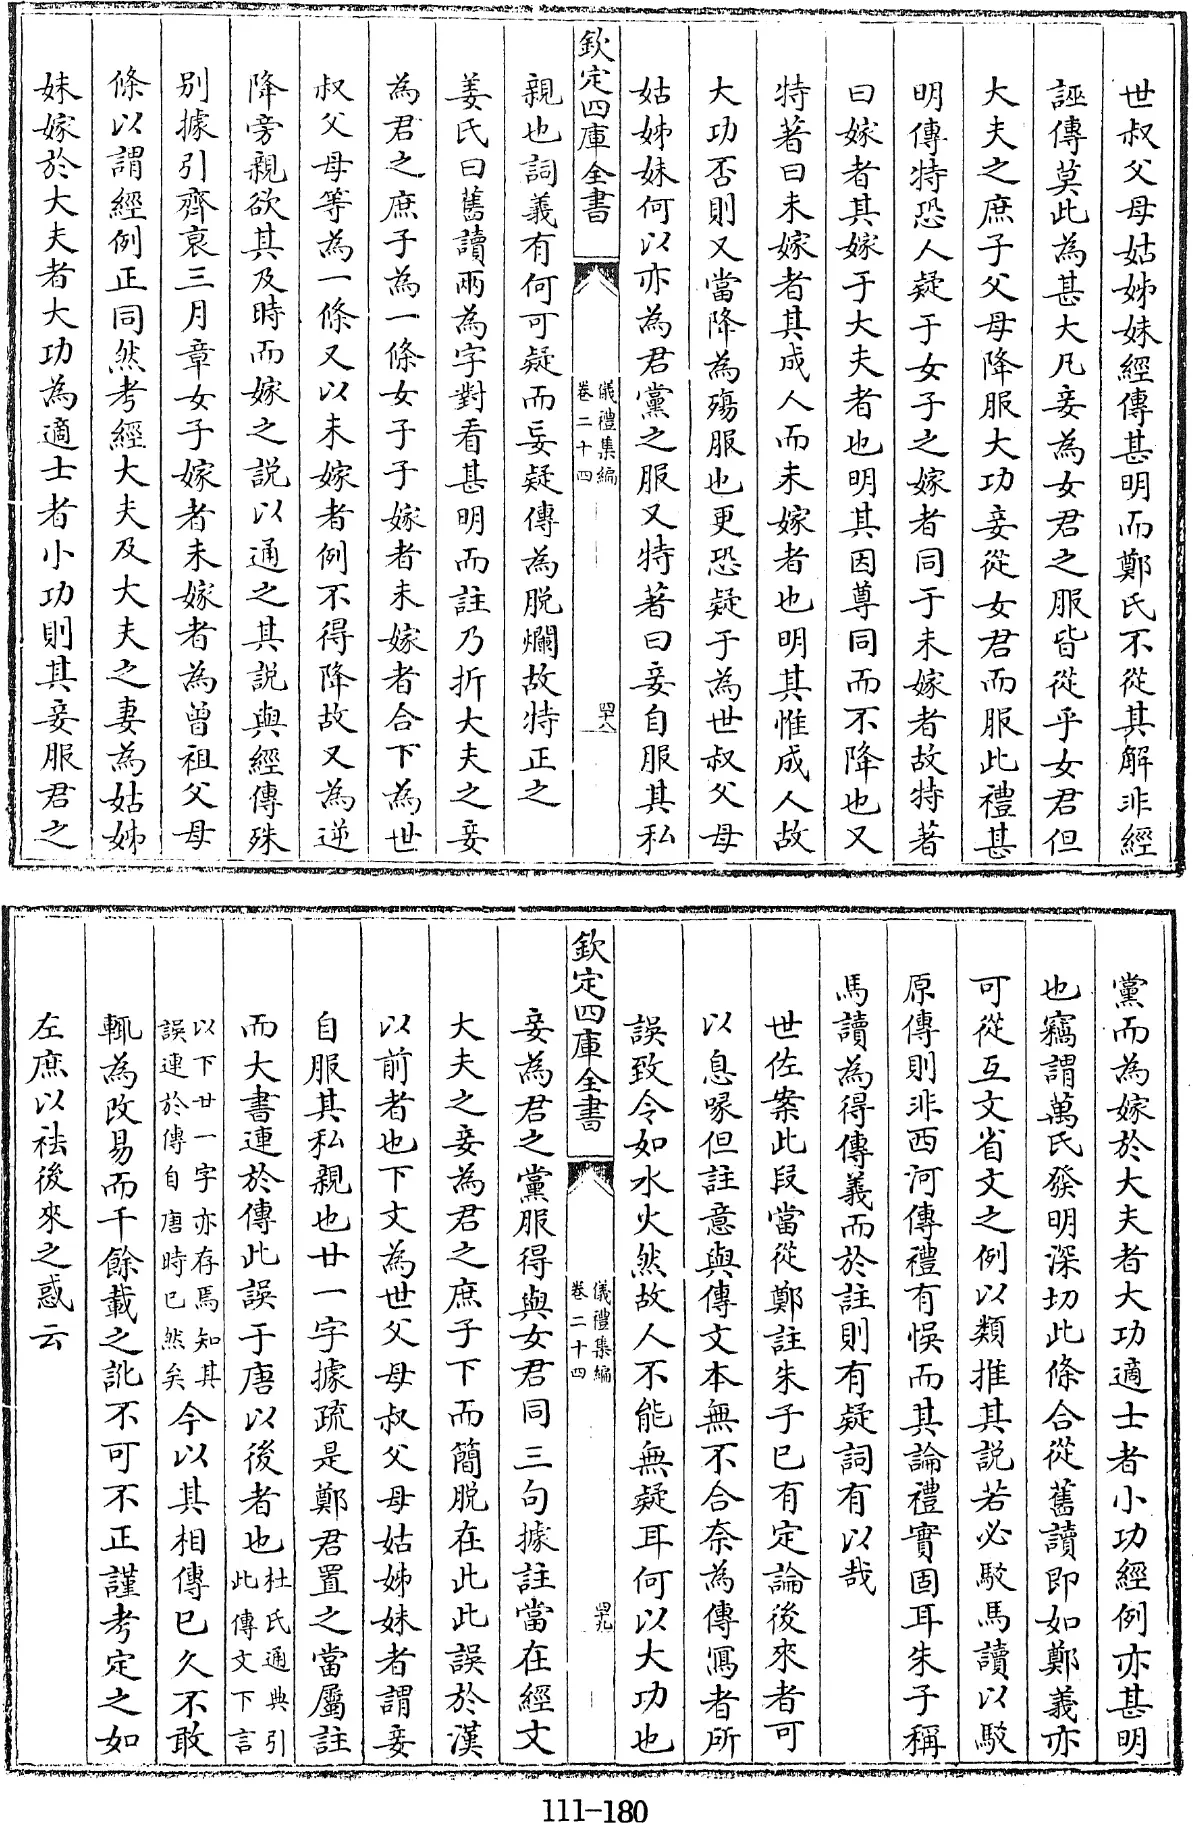 世叔父母姑姊妹經傳甚明而鄭氏不從其解非經
誣傳莫此為甚大凡妾為女君之服皆從乎女君但
大夫之庶子父母降服大功妾從女君而服此禮甚
明傳特恐人疑于女子之嫁者同于未嫁者故特著
曰嫁者其嫁于大夫者也明其因尊同而不降也又
特著曰未嫁者其成人而未嫁者也明其惟成人故
大功否則又當降為殤服也更恐疑于為世叔父母
姑姊妹何以亦為君黨之服又特著曰妾自服其私
欽定四庫全書
儀禮集編
卷二十四
四十八
親也詞義有何可疑而妄疑傳為脫爛故特正之
姜氏曰舊讀兩為字對看甚明而註乃折大夫之妾
為君之庶子為一條女子子嫁者未嫁者合下為世
叔父母等為一條又以未嫁者例不得降故又為逆
降旁親欲其及時而嫁之說以通之其說與經傳殊
別據引齊衰三月章女子嫁者未嫁者為曾祖父母
條以謂經例正同然考經大夫及大夫之妻為姑姊
妹嫁於大夫者大功為適士者小功則其妾服君之
黨而為嫁於大夫者大功適士者小功經例亦甚明
也竊謂萬氏發明深切此條合從舊讀即如鄭義亦
可從互文省文之例以類推其說若必駁馬讀以駁
原傳則非西河傳禮有悞而其論禮實固耳朱子稱
馬讀為得傳義而於註則有疑詞有以哉
世佐案此段當從鄭註朱子已有定論後來者可
以息喙但註意與傳文本無不合奈為傳寫者所
誤致令如水火然故人不能無疑耳何以大功也
欽定四庫全書
儀禮集編
卷二十四
四十九
妾為君之黨服得與女君同三句據註當在經文
大夫之妾為君之庶子下而簡脫在此此誤於漢
以前者也下文為世父母叔父母姑姊妹者謂妾
自服其私親也廿一字據疏是鄭君置之當屬註
而大書連於傳此誤于唐以後者也杜氏通典引此傳文下言
以下廿一字亦存焉知其誤連於傳自唐時已然矣今以其相傳已久不敢
輒為改易而千餘載之訛不可不正謹考定之如
左庶以袪後來之惑云
111-180